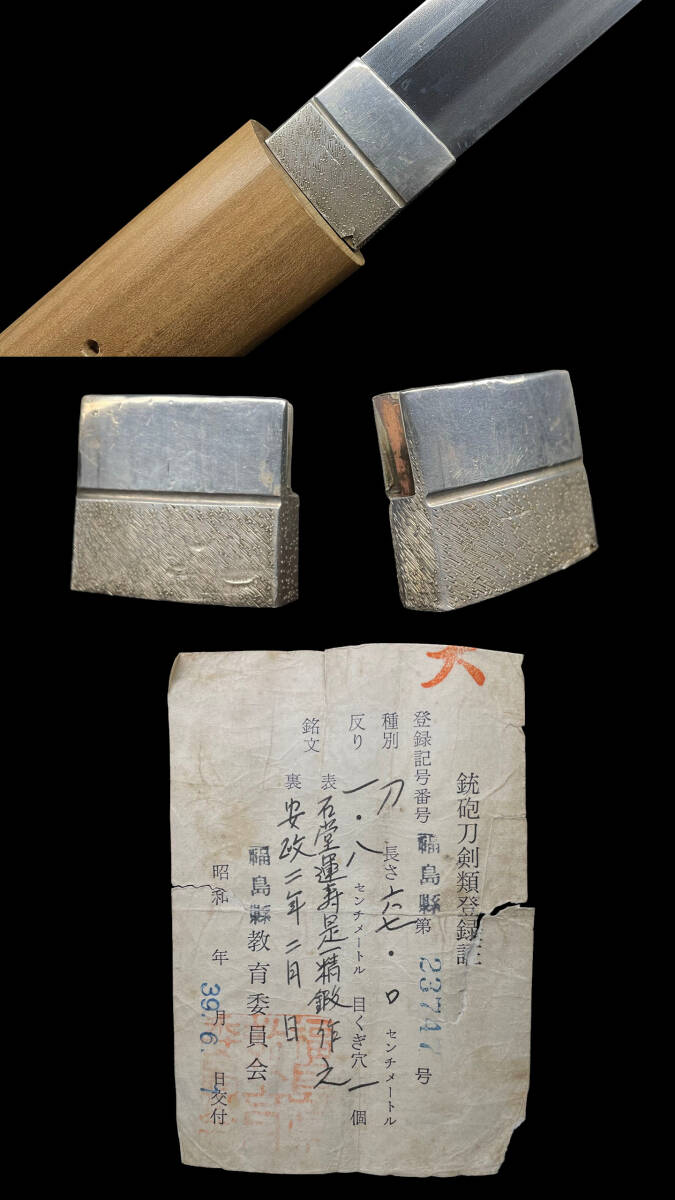 大
銃砲刀剣類登録証
登録記号番号 福島縣 第 23747 号
種別 刀 長さ 六七・〇 センチメートル
反り 一・八 センチメートル 目くぎ穴 一 個
銘文 表 石堂運寿是一精鍛作之
裏 安政二年二月日
福島縣教育委員会
昭和 39年 6月 日交付